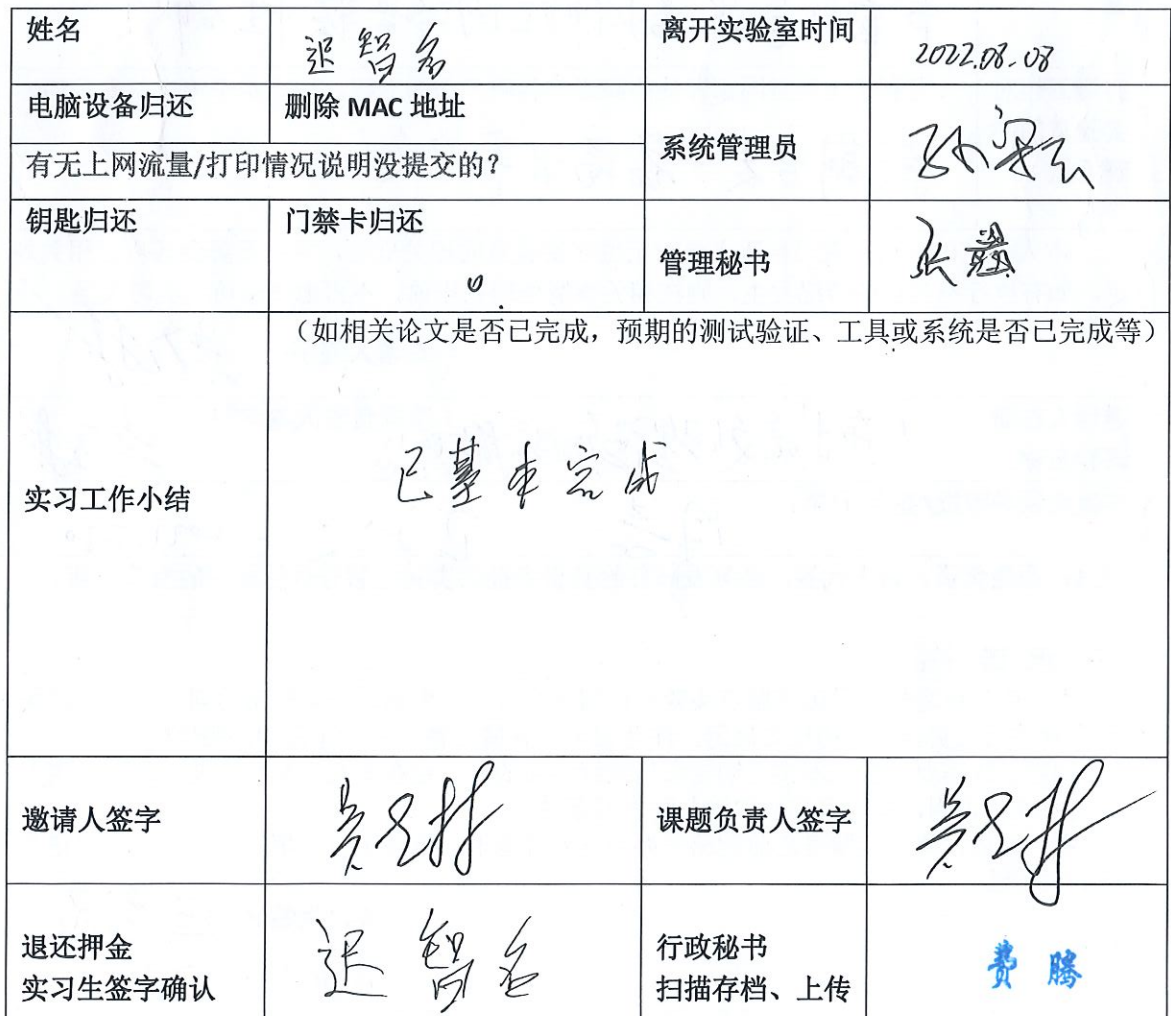 姓名
迟智名
离开实验室时间
2022.08.08
电脑设备归还
删除 MAC 地址
系统管理员
有无上网流量/打印情况说明没提交的?
钥匙归还
门禁卡归还
管理秘书
(如相关论文是否已完成,预期的测试验证、工具或系统是否已完成等)
实习工作小结
已基本完成
邀请人签字
课题负责人签字
退还押金
实习生签字确认
迟智名
行政秘书
扫描存档、上传
费腾